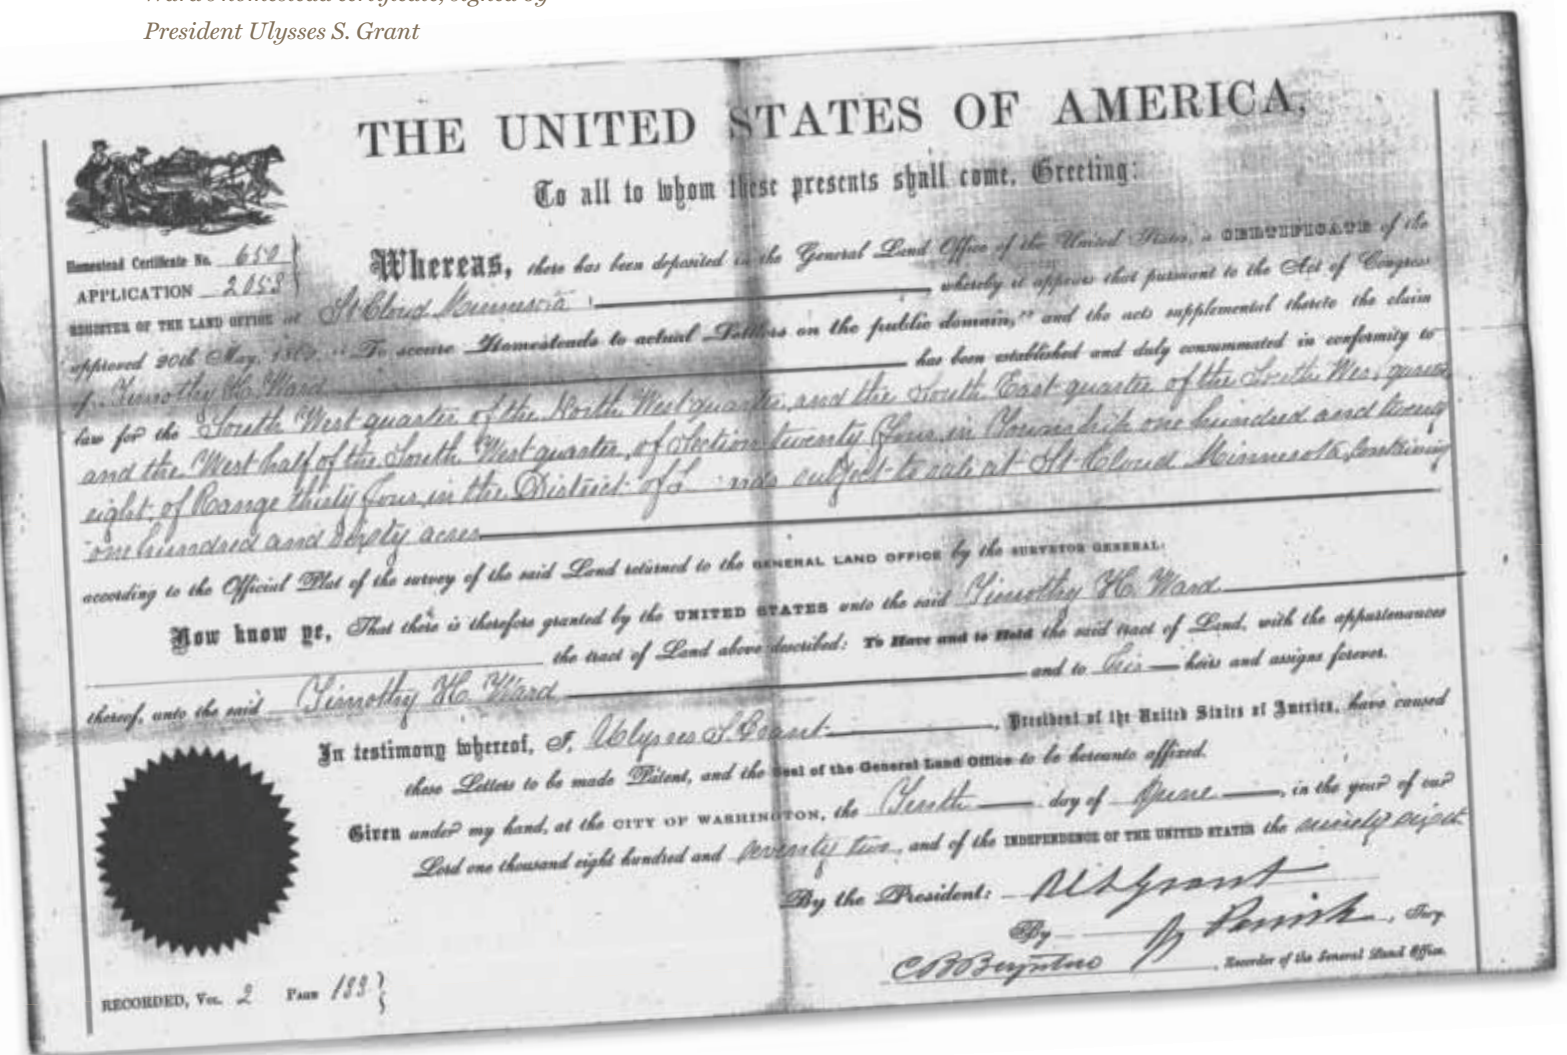 President Ulysses S. Grant
THE UNITED STATES OF AMERICA,
To all to whom these presents shall come, Greeting:
Homestead Certificate No. 650
APPLICATION 2058
Whereas, there has been deposited in the General Land Office of the United States, a CERTIFICATE of the
REGISTER OF THE LAND OFFICE at St Cloud Minnesota, whereby it appears that pursuant to the Act of Congress
approved 20th May, 1862, "To secure Homesteads to actual Settlers on the public domain," and the acts supplemental thereto the claim
of Timothy H. Ward has been established and duly consummated in conformity to
law for the South West quarter of the North West quarter, and the South East quarter of the South West quarter
and the West half of the South West quarter, of Section twenty four in Township one hundred and twenty
eight, of Range thirty four, in the District of L nds subject to sale at St Cloud Minnesota, Containing
one hundred and sixty acres
according to the Official Plat of the survey of the said Land returned to the GENERAL LAND OFFICE by the SURVEYOR GENERAL:
Now know ye, That there is therefore granted by the UNITED STATES unto the said Timothy H. Ward
the tract of Land above described: To Have and to Hold the said tract of Land, with the appurtenances
thereof, unto the said Timothy H. Ward and to his heirs and assigns forever.
In testimony whereof, I, Ulysses S. Grant, President of the United States of America, have caused
these Letters to be made Patent, and the Seal of the General Land Office to be hereunto affixed.
Given under my hand, at the CITY OF WASHINGTON, the Tenth day of June, in the year of our
Lord one thousand eight hundred and seventy two, and of the INDEPENDENCE OF THE UNITED STATES the ninety sixth
By the President: U S Grant
By Parrish, Secy.
Recorder of the General Land Office.
RECORDED, Vol. 2 Page 133